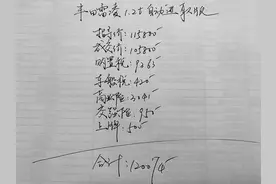 丰田雷凌 1.2t 自动进取版
指导价:115800
成交价:105800
购置税:9363
车船税:420
商业险:3041
交强险:950
上牌:500
合计:120074